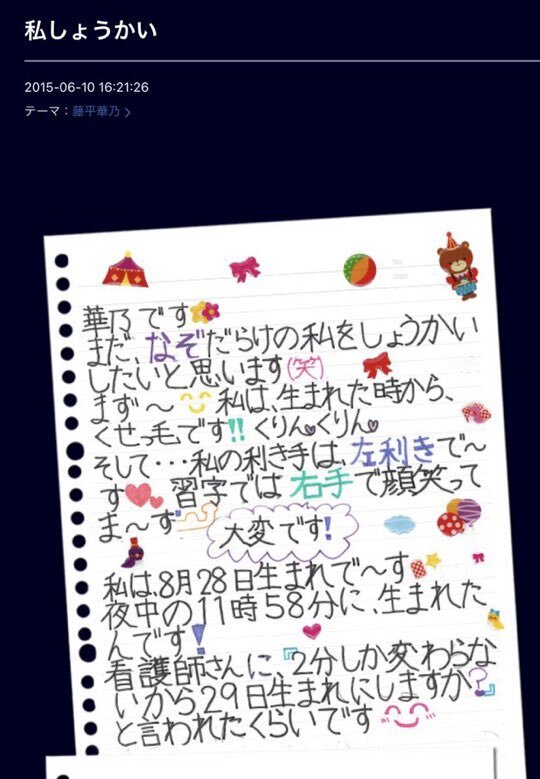 私しょうかい
2015-06-10 16:21:26
テーマ：藤平華乃
華乃です
まだ、なぞだらけの私をしょうかい
したいと思います(笑)
まず〜 私は、生まれた時から、
くせっ毛です!! くりん くりん
そして・・・私の利き手は、左利きで〜
す 習字では右手で顔笑って
ま〜す
大変です!
私は、8月28日生まれで〜す
夜中の11時58分に、生まれた
んです!
看護師さんに、『2分しか変わらな
いから29日生まれにしますか?』
と言われたくらいです